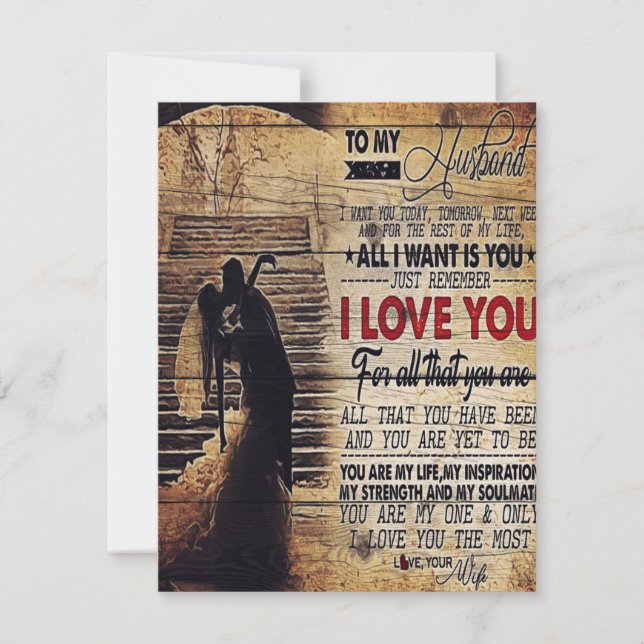 TO MY
Husband
I WANT YOU TODAY, TOMORROW, NEXT WEE
AND FOR THE REST OF MY LIFE,
ALL I WANT IS YOU
JUST REMEMBER
I LOVE YOU
For all that you are
ALL THAT YOU HAVE BEEN
AND YOU ARE YET TO BE
YOU ARE MY LIFE,MY INSPIRATION
MY STRENGTH AND MY SOULMAT
YOU ARE MY ONE & ONLY
I LOVE YOU THE MOST
LOVE, YOUR
Wife